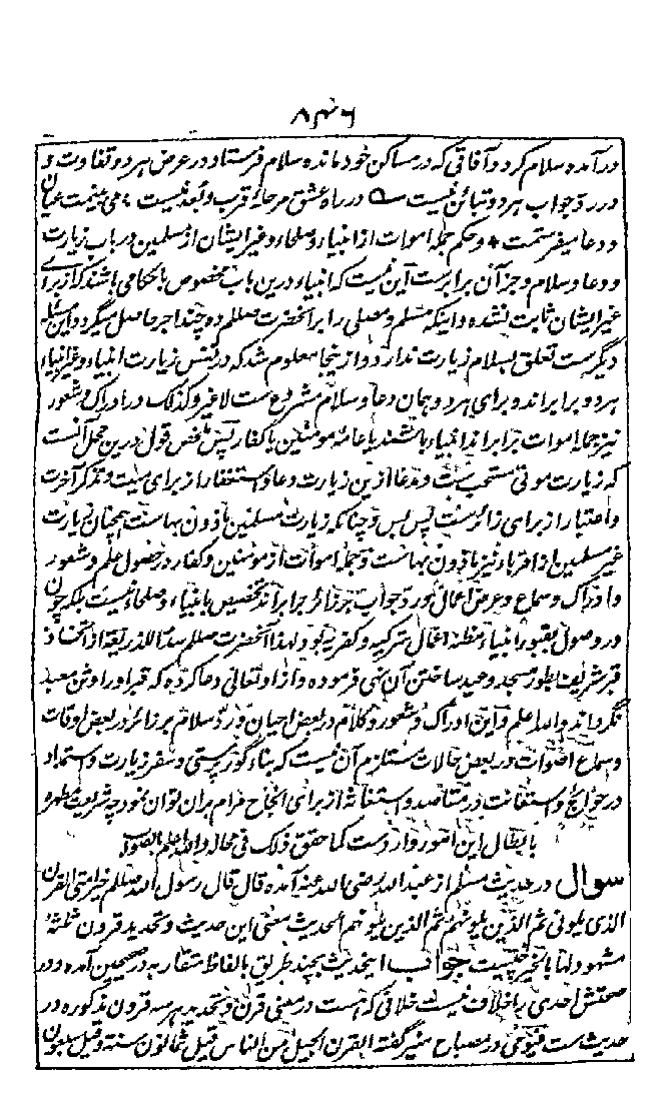 ۸۴۶
درآمده سلام کرد و آفاقی که در مساکن خود مانده سلام فرستاد در عرض هر دو تفاوت و
در رد جواب هر دو تبائن نیست در راه عشق مرحلهٔ قرب و بعد نیست می بینمت عیان
و دعا میفرستمت و حکم جملهٔ اموات از انبیاء و صلحاء و غیر ایشان از مسلمین در باب زیارت
و دعا و سلام و جز آن برابرست این نیست که انبیاء درین باب مخصوص باحکامی باشند که از برای
غیر ایشان ثابت نشده و اینکه مسلم و مصلی را بر آنحضرت صلعم ده چند اجر حاصل میگردد این مسئله
دیگرست تعلق بسلام زیارت ندارد و از ینجا معلوم شد که در نفس زیارت انبیاء و غیر انبیاء
هر دو برابراند و برای هر دو همان دعا و سلام مشروع ست لاغیر وکذلک در ادراک و شعور
نیز جملهٔ اموات برابراند انبیاء باشند یا عامهٔ مومنین یا کفار پس ملخص قول درین محل آنست
که زیارت موتی مستحب ست و مدعا ازین زیارت دعا و استغفار از برای میت و تذکر آخرت
و اعتبار از برای زائر ست پس بس و چنانکه زیارت مسلمین ماذون بهاست همچنان زیارت
غیر مسلمین از اقرباء نیز ماذون بهاست و جملهٔ اموات از مومنین و کفار در حصول علم و شعور
و ادراک و سماع و عرض اعمال و رد جواب بر زائر برابراند تخصیص بانبیاء و صلحاء نیست بلکه چون
در وصول بقبور انبیاء مظنهٔ افعال شرکیه و کفریه بود لهذا آنحضرت صلعم سدا للذریعة از اتخاذ
قبر شریف بطور مسجد و عید ساختن آن نهی فرموده و از او تعالی دعا کرده که قبر او را وثن معبد
نگرداند والله اعلم و این ادراک و شعور و کلام در بعض احیان و رد سلام بر زائر در بعض اوقات
و سماع اصوات در بعض حالات مستلزم آن نیست که بناء گور پرستی و سفر زیارت و استمداد
در حوائج و استعانت در مقاصد و استغاثه از برای انجاح مرام بران توان نمود چه شریعت مطهره
بابطال این امور وارد ست کما حقق ذلک فی محاله والله اعلم بالصواب
سوال در حدیث مسلم از عبدالله رضی الله عنه آمده قال قال رسول الله صلعم خیر امتی القرن
الذی یلونی ثم الذین یلونهم ثم الذین یلونهم الحدیث معنی این حدیث و تحدید قرون ثلثهٔ
مشهود لها بالخیر چیست جواب اینحدیث بچند طریق بالفاظ متقاربه در صحیحین آمده و در
صحتش احدی را خلاف نیست خلافی که هست در معنی قرن و تحدید هر سه قرون مذکوره در
حدیث ست فیومی در مصباح منیر گفته القرن الجیل من الناس قیل ثمانون سنة و قیل سبعون